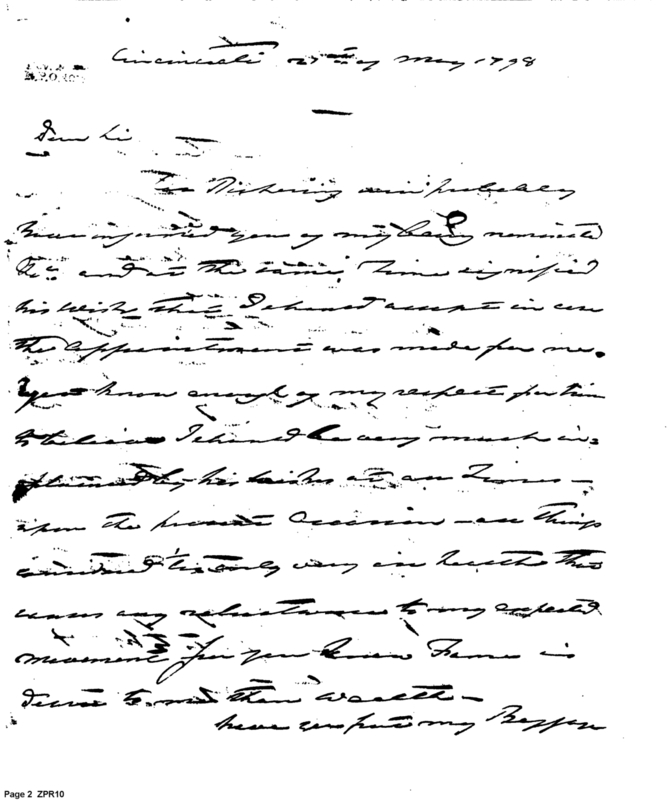 Cincinnati 27th of May 1798
Dear Sir
Pickering will probably
Have informed you of my being nominated
and at the same Time signified
his wish that I should accept in case
the appointment was made for me.
You know enough of my respect for him
to believe I should be very much in-
by his wishes at all Times -
upon the present Occasion - all things
considered tis only very ill health that
causes any reluctance to my expected
movement for you know Fame is
dearer to me than wealth -
have you put my
Page 2 ZPR10